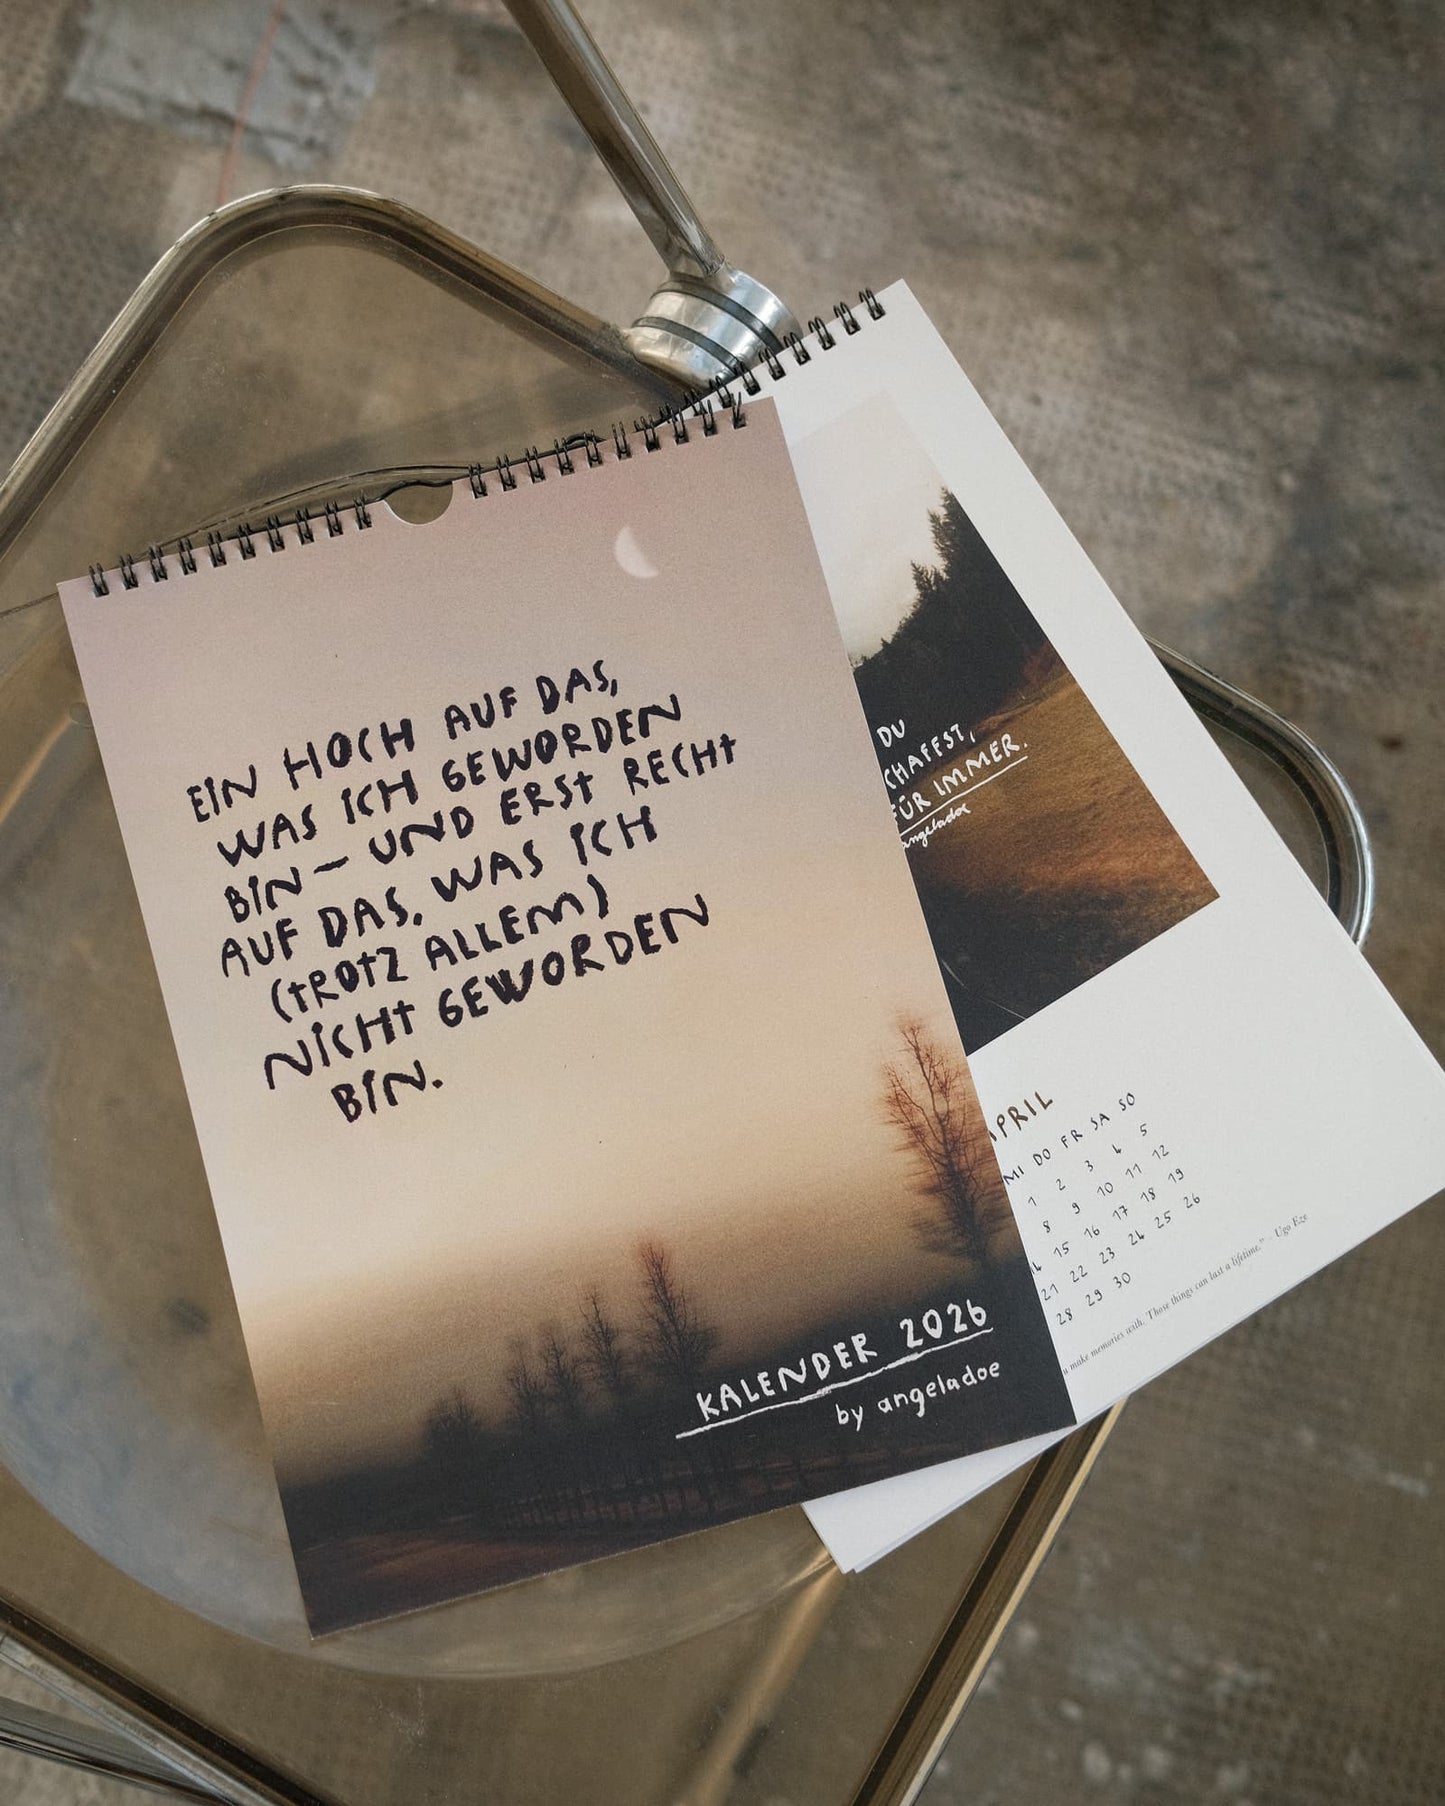 EIN HOCH AUF DAS,
WAS ICH GEWORDEN
BIN – UND ERST RECHT
AUF DAS, WAS ICH
(TROTZ ALLEM)
NICHT GEWORDEN
BIN.
KALENDER 2026
by angeladoe
DU
FÜR IMMER.
angeladoe
MI DO FR SA SO
1 2 3 4 5
8 9 10 11 12
15 16 17 18 19
21 22 23 24 25 26
28 29 30
make memories with. Those things can last a lifetime.” – Ugo Eze